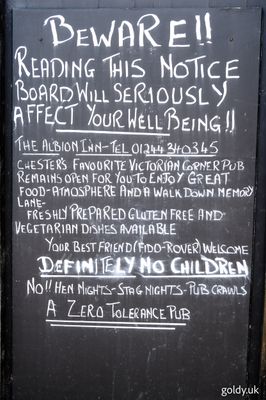 BEWARE!!
READING THIS NOTICE
BOARD WILL SERIOUSLY
AFFECT YOUR WELL BEING!!
THE ALBION INN-TEL 01244 340345
CHESTER'S FAVOURITE VICTORIAN CORNER PUB
REMAINS OPEN FOR YOU TO ENJOY GREAT
FOOD-ATMOSPHERE AND A WALK DOWN MEMORY
LANE-
FRESHLY PREPARED GLUTEN FREE AND
VEGETARIAN DISHES AVAILABLE
YOUR BEST FRIEND (FIDO-ROVER) WELCOME
DEFINITELY NO CHILDREN
NO!! HEN NIGHTS-STAG NIGHTS-PUB CRAWLS
A ZERO TOLERANCE PUB
goldy.uk